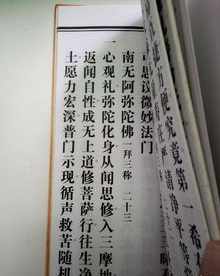 清净平等
方便究竟第一希
是
微妙法门
南无阿弥陀佛 一拜三称 二十三
一心观礼弥陀化身从闻思修入三摩地
返闻自性成无上道修菩萨行往生净
土愿力宏深普门示现循声救苦随机